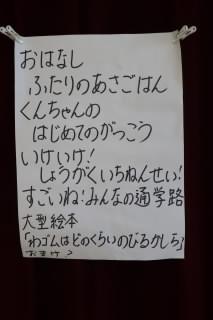 おはなし
ふたりのあさごはん
くんちゃんの
はじめてのがっこう
いけいけ!
しょうがくいちねんせい!
すごいね!みんなの通学路
大型絵本
「わゴムはどのくらいのびるかしら」
おまけ?